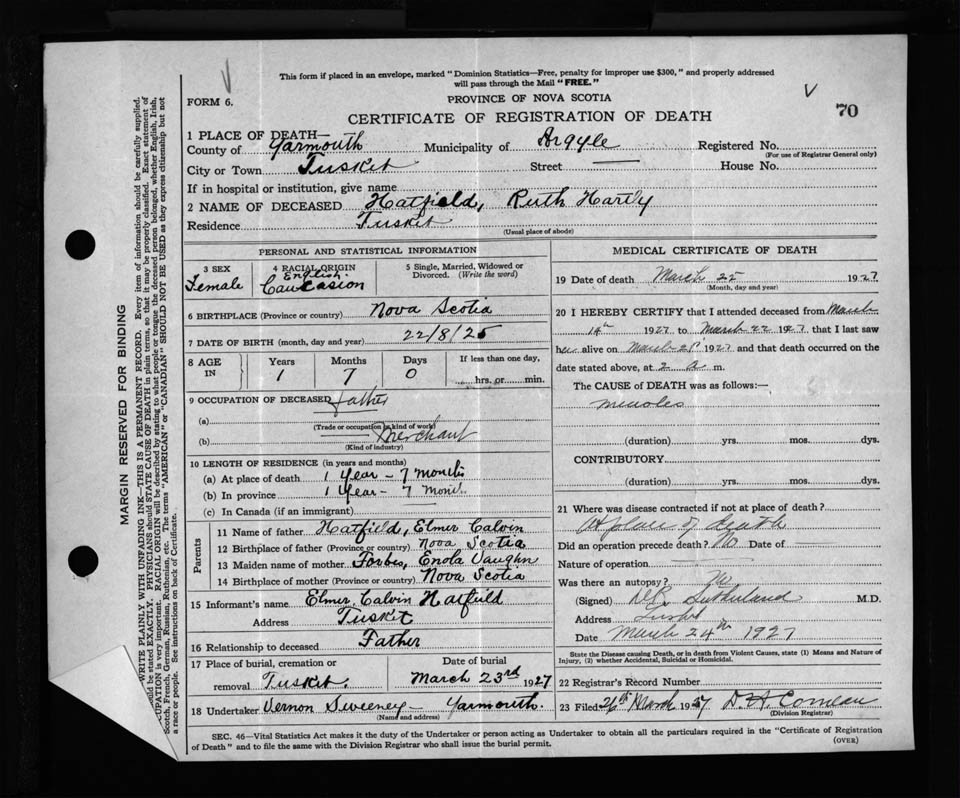 This form if placed in an envelope, marked "Dominion Statistics—Free, penalty for improper use $300," and properly addressed
will pass through the Mail "FREE."
FORM 6.
PROVINCE OF NOVA SCOTIA
70
CERTIFICATE OF REGISTRATION OF DEATH
1 PLACE OF DEATH—
County of Yarmouth Municipality of Argyle Registered No.
(For use of Registrar General only)
City or Town Tusket Street — House No.
If in hospital or institution, give name
2 NAME OF DECEASED Hatfield, Ruth Hartly
Residence Tusket
(Usual place of abode)
PERSONAL AND STATISTICAL INFORMATION
3 SEX
Female
4 RACIAL ORIGIN
English
Caucasion
5 Single, Married, Widowed or
Divorced. (Write the word)
6 BIRTHPLACE (Province or country) Nova Scotia
7 DATE OF BIRTH (month, day and year) 22/8/25
8 AGE IN
Years Months Days If less than one day,
1 7 0 hrs. or min.
9 OCCUPATION OF DECEASED Father
(a)
(Trade or occupation or kind of work)
(b) Merchant
(Kind of industry)
10 LENGTH OF RESIDENCE (in years and months)
(a) At place of death 1 Year – 7 Months
(b) In province 1 Year – 7 Month
(c) In Canada (if an immigrant)
Parents
11 Name of father Hatfield, Elmer Calvin
12 Birthplace of father (Province or country) Nova Scotia
13 Maiden name of mother Forbes, Enola Vaughn
14 Birthplace of mother (Province or country) Nova Scotia
15 Informant's name Elmer Calvin Hatfield
Address Tusket
16 Relationship to deceased Father
17 Place of burial, cremation or Date of burial
removal Tusket. March 23rd 1927
18 Undertaker Vernon Sweeney – Yarmouth.
(Name and address)
MEDICAL CERTIFICATE OF DEATH
19 Date of death March 22 1927
(Month, day and year)
20 I HEREBY CERTIFY that I attended deceased from March
14th 1927 to March 22 1927 that I last saw
her alive on March 21st 1927 and that death occurred on the
date stated above, at 2 a m.
The CAUSE OF DEATH was as follows:—
measles
(duration) yrs. mos. dys.
CONTRIBUTORY
(duration) yrs. mos. dys.
21 Where was disease contracted if not at place of death?
At place of death
Did an operation precede death? No Date of —
Nature of operation —
Was there an autopsy? No
(Signed) Sutherland M.D.
Address Tusket
Date March 24th 1927
State the Disease causing Death, or in death from Violent Causes, state (1) Means and Nature of
Injury, (2) whether Accidental, Suicidal or Homicidal.
22 Registrar's Record Number
23 Filed 26th March 1927 D. A. Comeau
(Division Registrar)
SEC. 46—Vital Statistics Act makes it the duty of the Undertaker or person acting as Undertaker to obtain all the particulars required in the "Certificate of Registration
of Death" and to file the same with the Division Registrar who shall issue the burial permit.
(OVER)
MARGIN RESERVED FOR BINDING
WRITE PLAINLY WITH UNFADING INK—THIS IS A PERMANENT RECORD. Every item of information should be carefully supplied.
should be stated EXACTLY. PHYSICIANS should STATE CAUSE OF DEATH in plain terms, so that it may be properly classified. Exact statement of
OCCUPATION is very important. RACIAL ORIGIN will be described by stating to what people or tongue the deceased person belonged, whether English, Irish,
Scotch, French, German, Russian, Ruthenian, etc. The terms "AMERICAN" or "CANADIAN" SHOULD NOT BE USED as they express citizenship but not
a race or people. See instructions on back of Certificate.